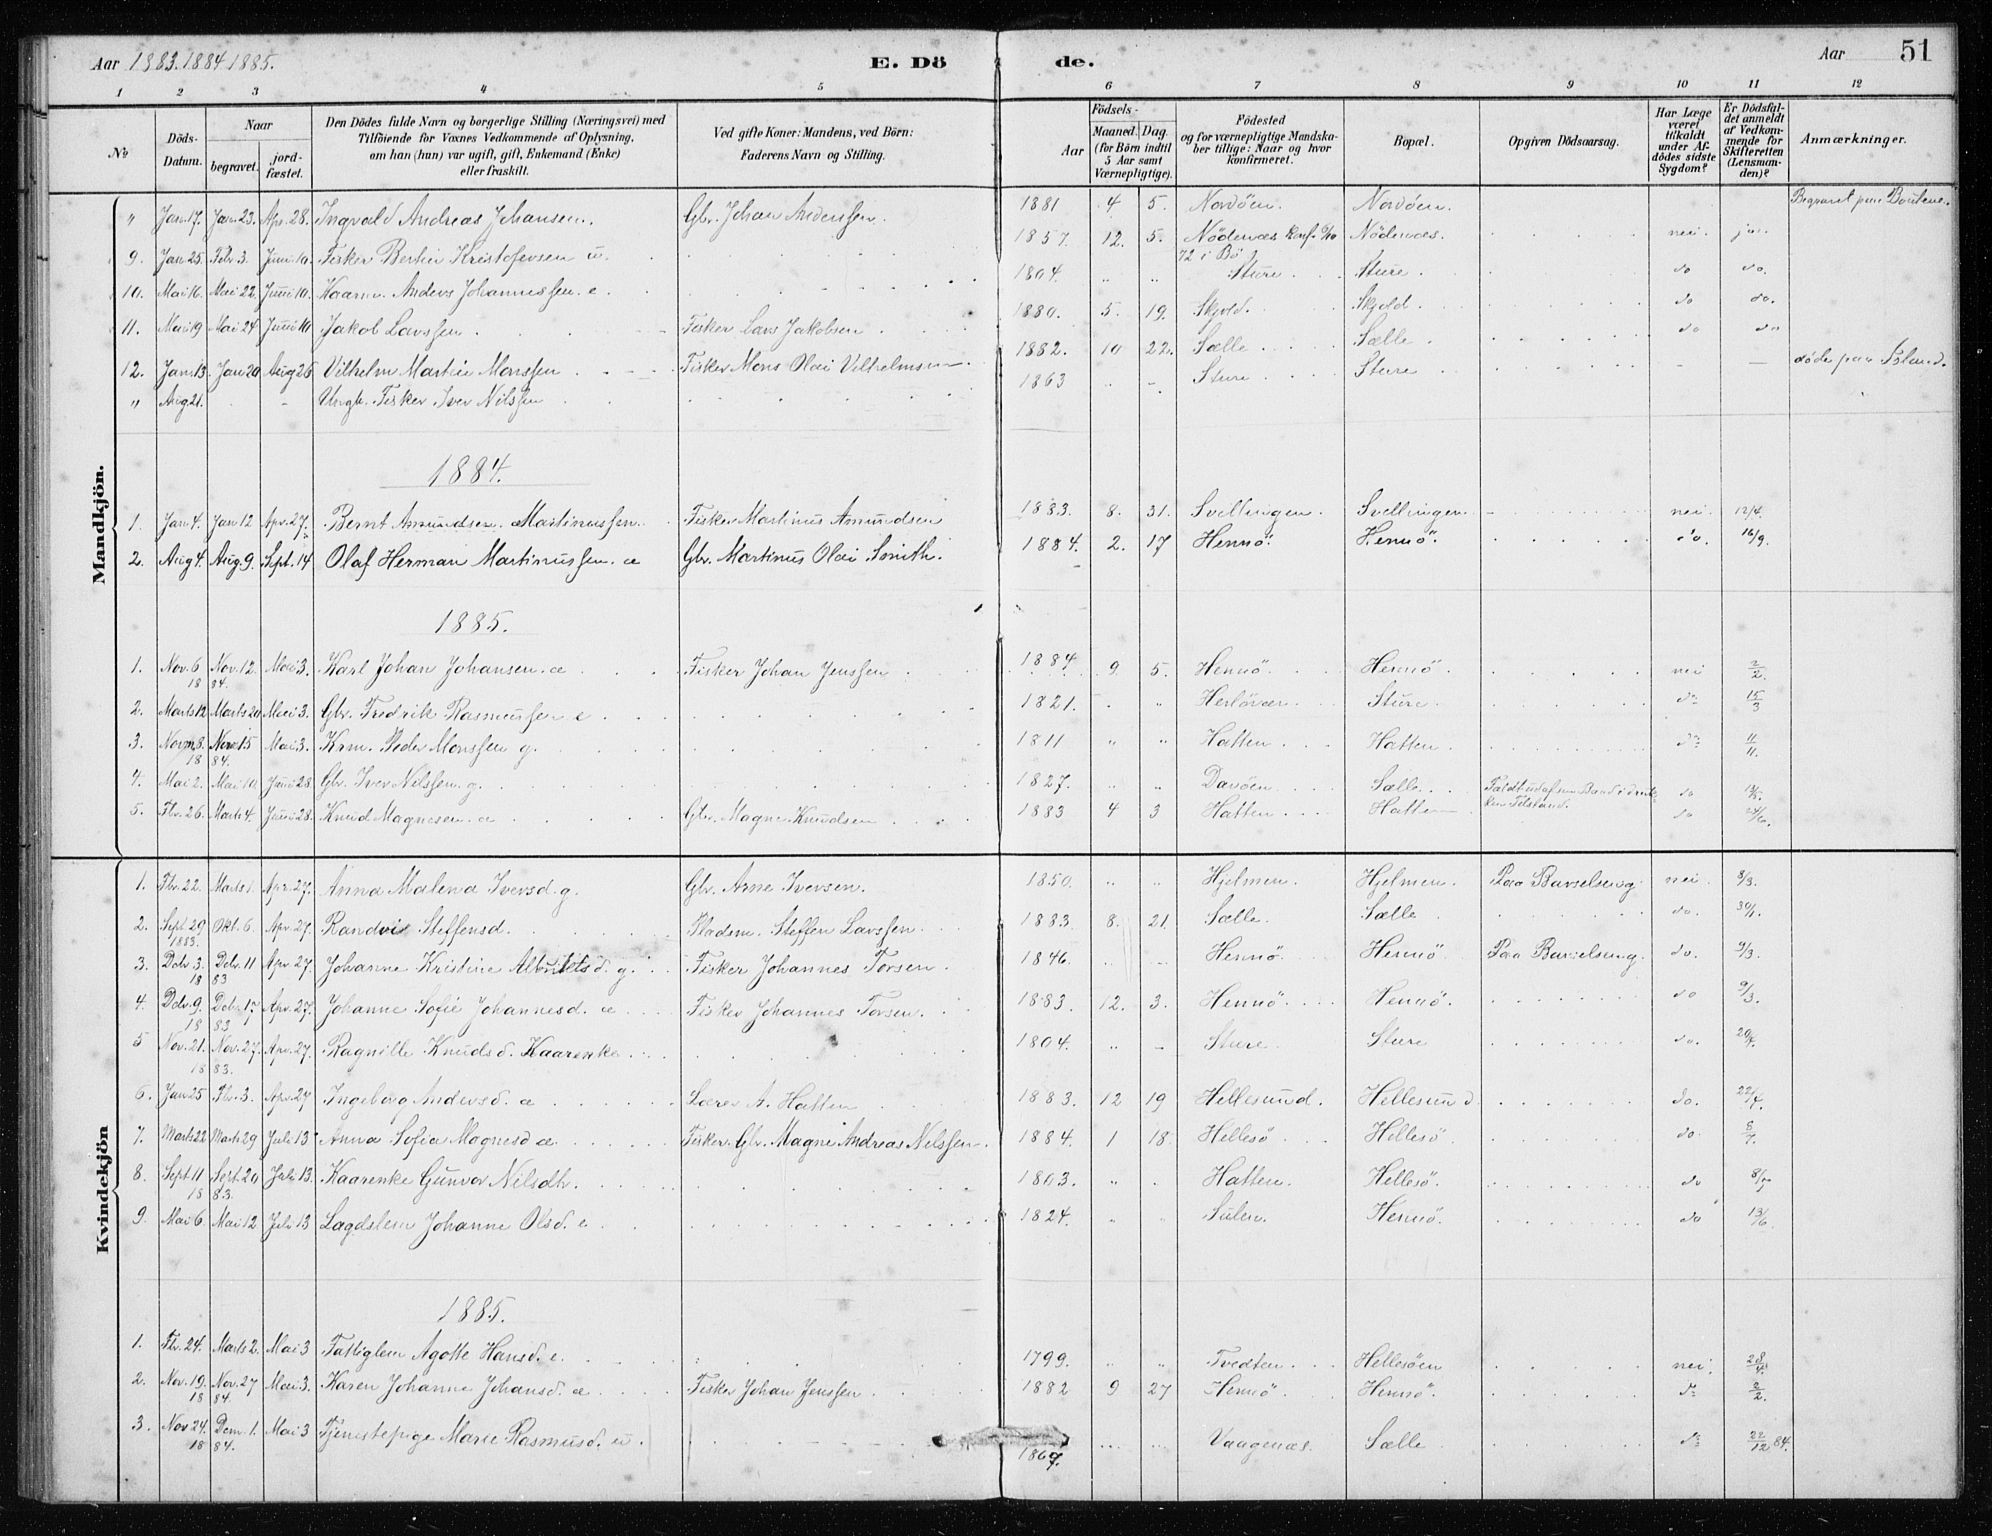 Aar 1883.1884 1885. E. Dö de. Aar 51
1 2 3 4 5 6 7 8 9 10 11 12
№ Döds-Datum. Naar begravet. jordfæstet. Den Dödes fulde Navn og borgerlige Stilling (Næringsvei) med Tilföiende for Voxnes Vedkommende af Oplysning, om han (hun) var ugift, gift, Enkemand (Enke) eller fraskilt. Ved gifte Koner: Mandens, ved Börn: Faderens Navn og Stilling. Födsels- Aar Maaned. Dag. (for Börn indtil 5 Aar samt Værnepligtige). Födested og for værnepligtige Mandskaber tillige: Naar og hvor konfirmeret. Bopæl. Opgiven Dödsaarsag. Har Læge været tilkaldt under Afdödes sidste Sygdom? Er Dödsfaldet anmeldt af Vedkommende for Skifteretten (Lensmanden)? Anmærkninger.
Mandkjön.
" Jan. 17. Jan. 23. Apr. 28. Ingvald Andreas Johansen. Gbr. Johan Anderssen. 1881 4 5. Nordöen. Nordöen. Begravet paa
9. Jan. 25. Febr. 3. Juni 10. Fisker Bertin Kristofersen u. 1857. 12. 5. Nödenæs konf. 72 i Bö Nödenæs. nei ja
10. Mai 16. Mai 22. Juni 10. Kaarm. Anders Johannessen. e. 1804. " " Sture Sture. do do.
11. Mai 19 Mai 24 Juni 10 Jakob Larssen. Fisker Lars Jakobsen 1880. 5. 19. Skjold. Skjold. do do.
12. Jan. 13. Jan 20 Aug 26 Vilhelm Martin Monssen Fisker Mons Olai Vilhelmsen 1882. 10 22. Sælle Sælle. do do
" Aug. 21. - Ungk. Fisker Iver Nilssen 1863 Sture Sture - döde paa Island.
1884.
1. Jan. 4. Jan 12 Apr. 27. Bernt Amundsen Martinussen. Fisker Martinus Amundsen 1883. 8. 31. Svellingen. Svellingen. nei. 12/4.
2. Aug 4. Aug. 9. Sept. 14 Olaf Herman Martinussen. æ Gbr. Martinus Olai Smith. 1884. 2. 17 Hennö. Hennö. do. 16/9.
1885.
1. Nov. 6 1884. Nov. 12. Mai 3. Karl Johan Johansen. æ Fisker Johan Jenssen 1884. 9 5. Hennö. Hennö. nei 2/2.
2. Marts 12 Marts 20 Mai 3. Gbr. Fredrik Rasmussen e 1821. " Herlövær Sture. do 15/3
3. Novm. 8. 1884. Nov. 15 Mai 3. Krm. Peder Monssen g. 1811 " " Hatten Hatten. do 11/11.
4. Mai 2. Mai 10. Juni 28. Gbr. Iver Nilssen. g. 1827. " " Davöen Sælle. do
5. Fbr. 26. Marts 4. Juni 28. Knud Magnesen. æ Gbr. Magne Knudsen 1883 4 3 Hatten Hatten do 24/6.
Kvindekjön
1. Fbr. 22. Marts 1. Apr. 27. Anna Malena Iversd. g. Gbr. Arne Iversen. 1850. " " Hjelmen. Hjelmen. Paa Barselseng nei. 8/3.
2. Sept. 29 1883. Okt. 6. Apr. 27. Randvei Steffensd. Pladsm. Steffen Larssen 1883. 8. 21. Sælle. Sælle do. 30/1.
3. Dcbr. 3. 1883 Dcbr. 11 Apr. 27. Johanne Kristine Albrigtsd. g. Fisker Johannes Torsen. 1846. Hennö. Hennö. Paa Barselseng. do. 9/3.
4. Dcbr. 9. 1883 Dcbr. 17 Apr. 27. Johanne Sofie Johannesd. æ Fisker Johannes Torsen. 1883. 12. 3. Hennö. Hennö. do 9/3.
5 Nov. 21. 1883. Nov. 27. Apr. 27. Ragnille Knudsd. Kaarenke. 1804. " - Sture Sture do. 20/4.
6. Jan. 25 Fbr. 3. Apr. 27 Ingeborg Andersd. æ Lærer A. Hatten 1883. 12 19 Hellesund. Hellesund do. 22/4.
7. Marts 22 Marts 29 Juli 13 Anna Sofia Magnesd æ. Fisker Gbr. Magne Andreas Nilssen. 1884. 1 18. Hellesö Hellesö. do 8/7.
8. Sept. 11 1883. Sept. 20 Juli 13. Kaarenke Gunvor Nilsdtr. 1803. " Hatten. Hellesö. do 8/7
9. Mai 6. Mai 12 Juli 13 Lægdslem Johanne Olsd. e 1824. " " Sulen. Hennö. do 13/6.
1885.
1. Fbr. 24. Marts 2. Mai 3 Fattiglem Agotte Hansd. e. 1799. " " Tvedten Hellesöen nei. 28/4.
2. Nov. 19. 1884. Nov. 27 Mai 3. Karen Johanne Johansd. æ Fisker Johan Jenssen 1882 9 27 Hennö Hennö. do 2/2.
3. Nov 24. 1884. Dcm. 1. Mai 3 Tjenestepige Marie Rasmusd. u. 1867. Vaagenæs. Sælle do 22/12 84.